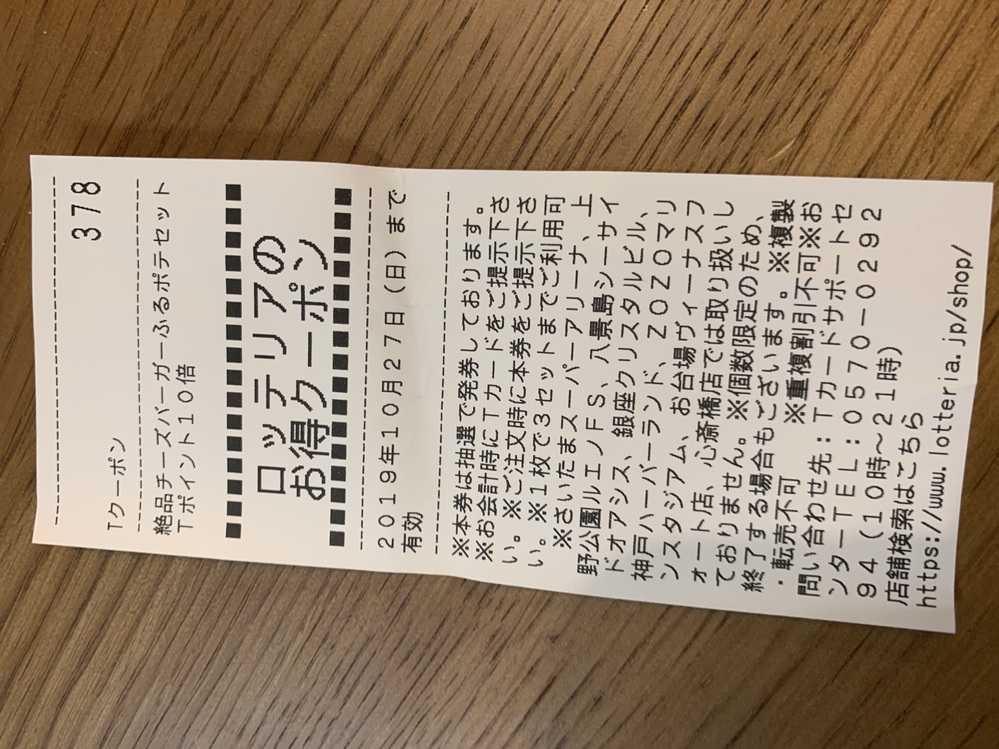 378
Tクーポン
絶品チーズバーガーふるポテセット
Tポイント10倍
ロッテリアの
お得クーポン
2019年10月27日(日)まで
有効
※本券は抽選で発券しております。
※お会計時にTカードをご提示下さ
い。※ご注文時に本券をご提示下さ
い。※1枚で3セットまでご利用可
※さいたまスーパーアリーナ、上
野公園ルエノFS、八景島シーサイ
ドオアシス、銀座クリスタルビル、
神戸ハーバーランド、ZOZOマリ
ンスタジアム、お台場ヴィーナスフ
ォート店、心斎橋店では取り扱いし
ておりません。※個数限定のため、
終了する場合もございます。※複製
・転売不可 ※重複割引不可※お
問い合わせ先:Tカードサポートセ
ンターTEL:0570-0292
94(10時~21時)
店舗検索はこちら
https://www.lotteria.jp/shop/